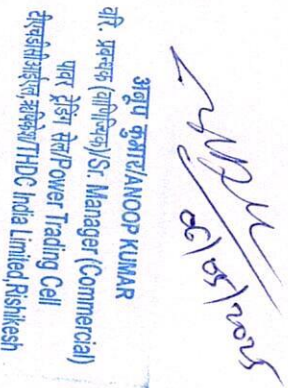 06/05/2025
अनूप कुमार/ANOOP KUMAR
वरि. प्रबन्धक (वाणिज्यिक)/Sr. Manager (Commercial)
पावर ट्रेडिंग सेल/Power Trading Cell
टीएचडीसीआईएल, ऋषिकेश/THDC India Limited, Rishikesh